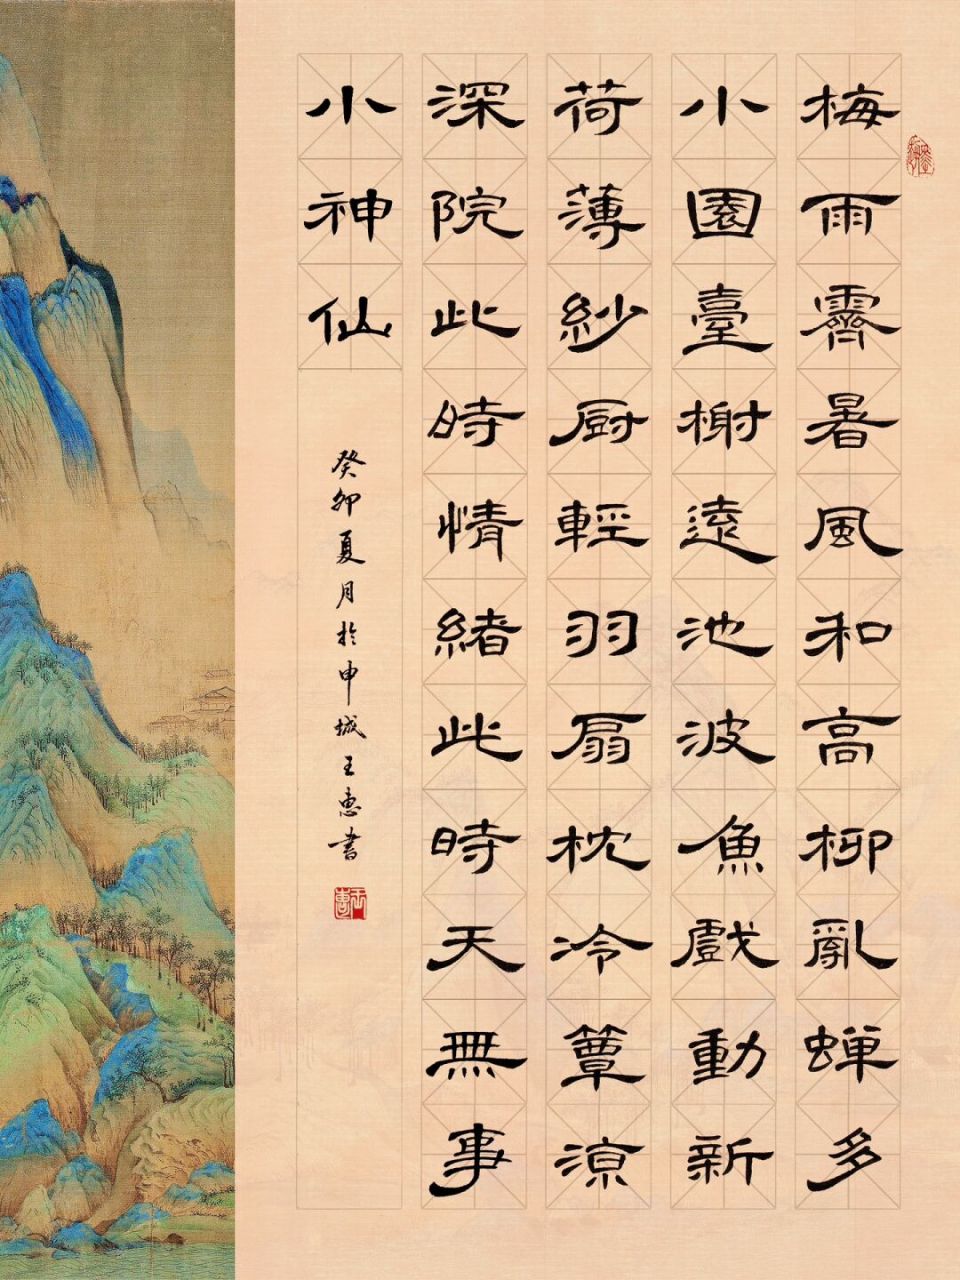 梅雨霽暑風和高柳亂蝉多
小園臺榭遠池波魚戲動新
荷薄紗厨輕羽扇枕冷簟涼
深院此時情緒此時天無事
小神仙
癸卯夏月於申城王惠書